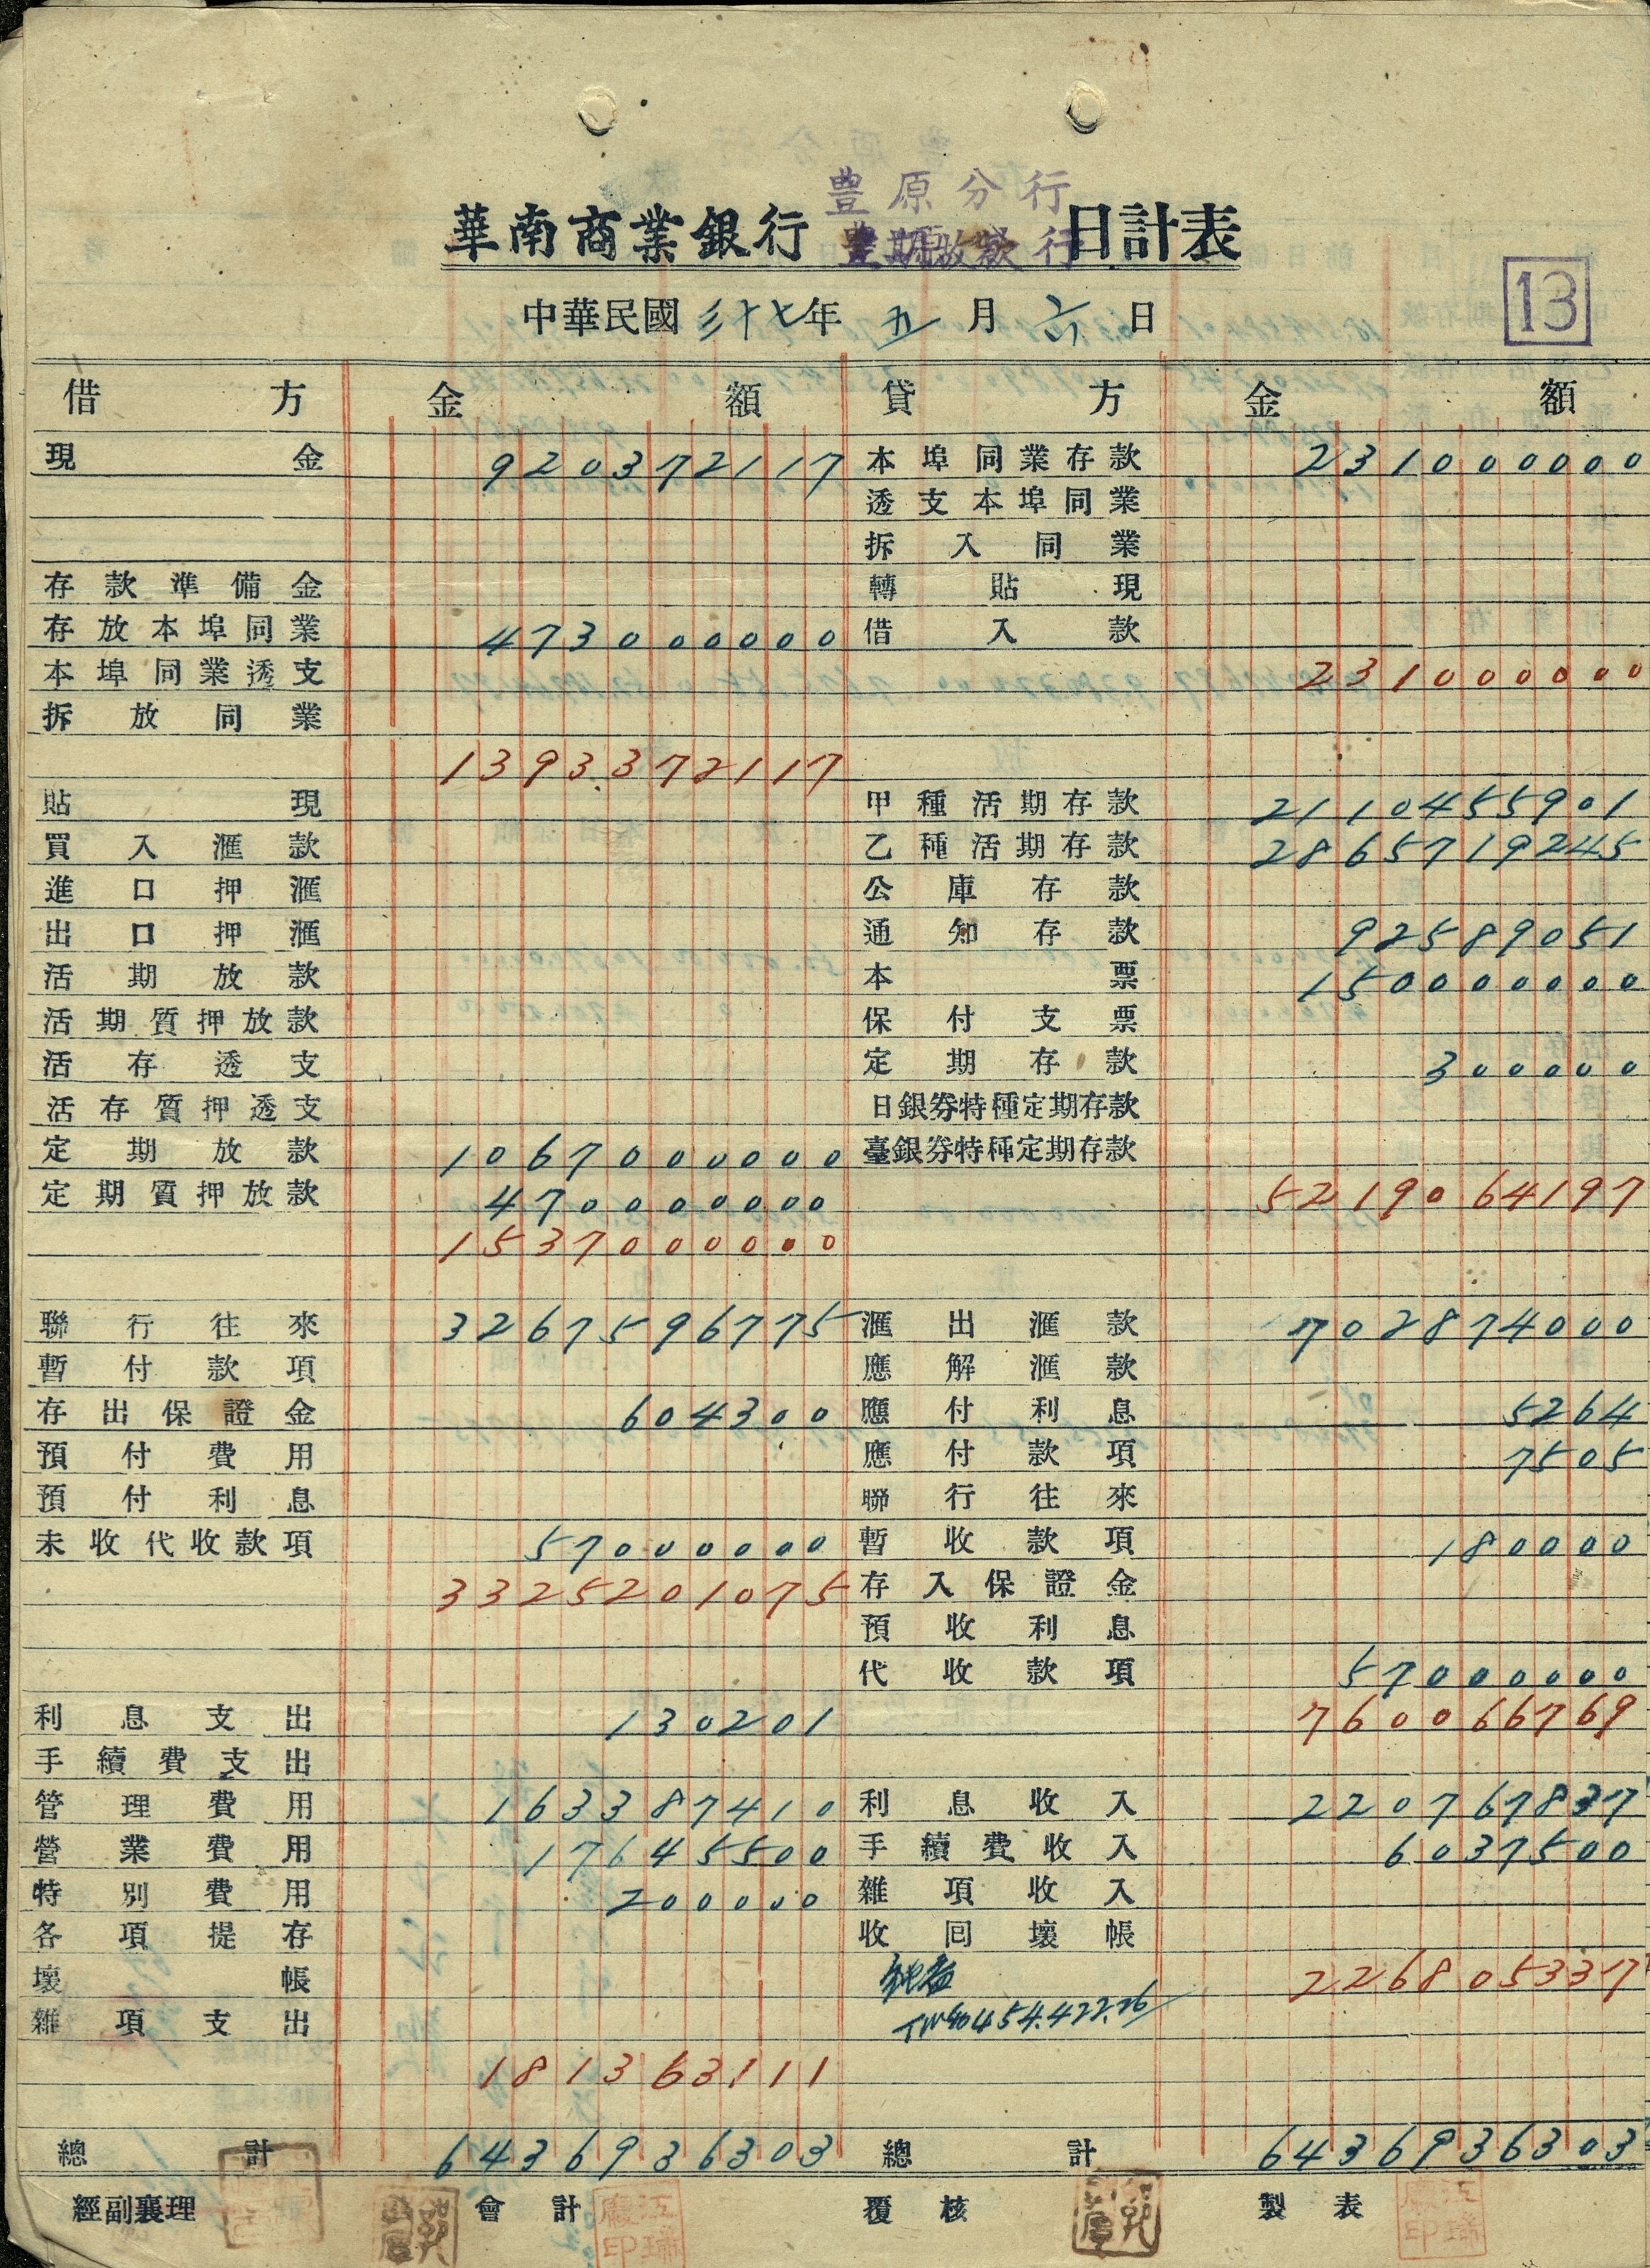 豊原分行
華南商業銀行 日計表
中華民國 三十七年 五 月 六 日
13
借方 金額 貸方 金額
現金 920372117 本埠同業存款 231000000
透支本埠同業
拆入同業
存款準備金 轉貼現
存放本埠同業 473000000 借入款
本埠同業透支 231000000
拆放同業
1393372117
貼現 甲種活期存款 2110455901
買入滙款 乙種活期存款 2865719245
進口押滙 公庫存款
出口押滙 通知存款 92589051
活期放款 本票 150000000
活期質押放款 保付支票
活存透支 定期存款 300000
活存質押透支 日銀券特種定期存款
定期放款 1067000000 臺銀券特種定期存款
定期質押放款 470000000 5219064197
1537000000
聯行往來 3267596775 滙出滙款 702874000
暫付款項 應解滙款
存出保證金 604300 應付利息 5264
預付費用 應付款項 7505
預付利息 聯行往來
未收代收款項 57000000 暫收款項 180000
3325201075 存入保證金
預收利息
代收款項 57000000
利息支出 130201 760066769
手續費支出
管理費用 163387410 利息收入 220767837
營業費用 17645500 手續費收入 6037500
特別費用 200000 雜項收入
各項提存 收回壞帳
壞帳 純益 226805337
雜項支出 TW$454.422.26
181363111
總計 6436936303 總計 6436936303
經副襄理 會計 覆核 製表